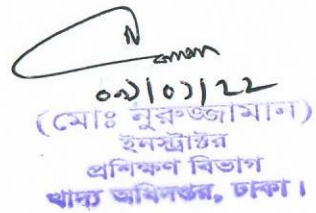 ০৯/০১/22
(মোঃ নুরুজ্জামান)
ইনস্ট্রাক্টর
প্রশিক্ষণ বিভাগ
খাদ্য অধিদপ্তর, ঢাকা।